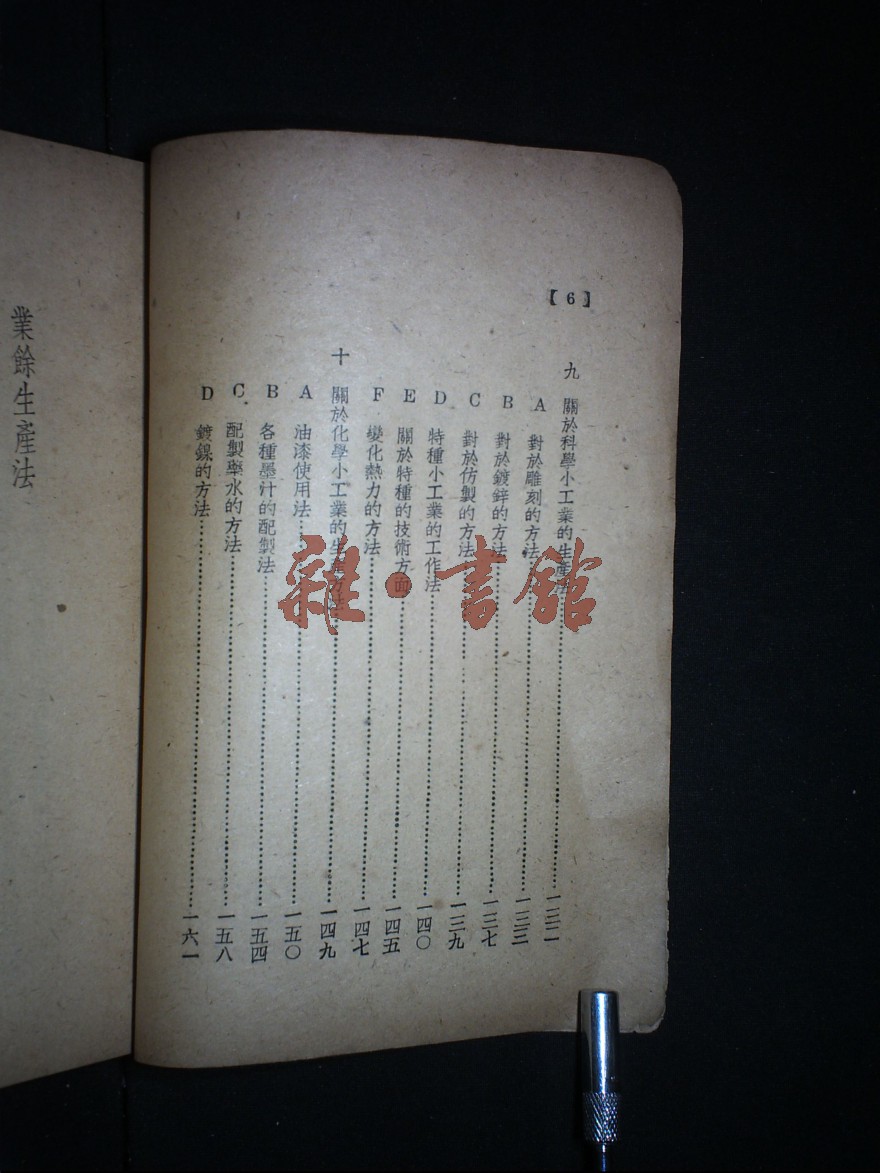 【6】
九 關於科學小工業的生產法……一三二
A 對於雕刻的方法……一三三
B 對於鍍鋅的方法……一三七
C 對於仿製的方法……一三九
D 特種小工業的工作法……一四〇
E 關於特種的技術方面……一四五
F 變化熱力的方法……一四七
十 關於化學小工業的生產方法……一四九
A 油漆使用法……一五〇
B 各種墨汁的配製法……一五四
C 配製藥水的方法……一五八
D 鍍鎳的方法……一六一
業餘生產法
雜·書館